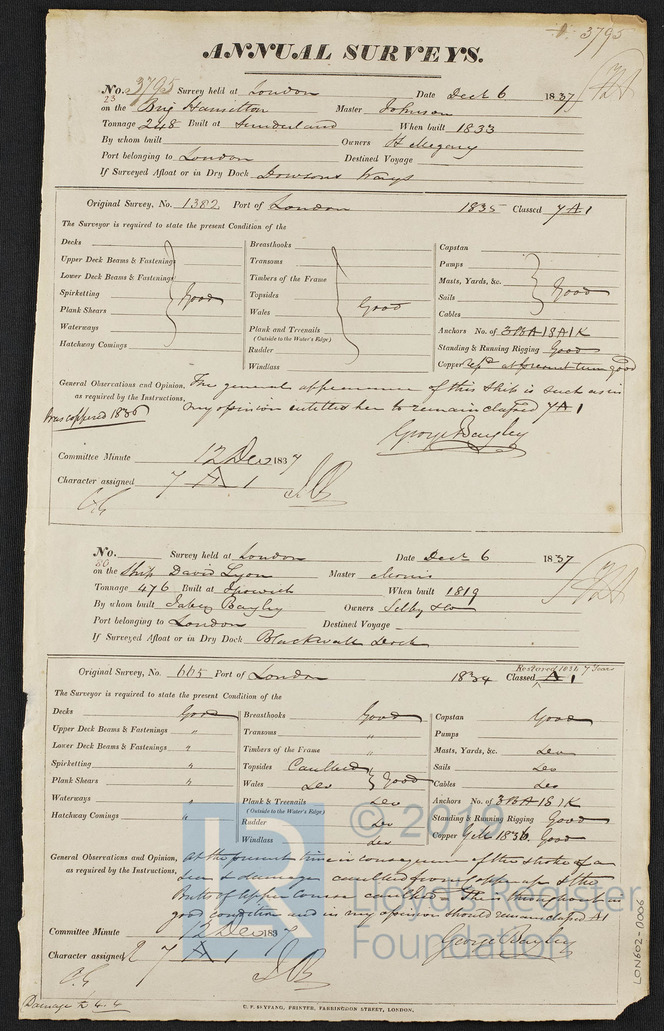 3795
ANNUAL SURVEYS.
No. 3795 Survey held at London Date Decr 6 1837
23 on the Brig Hamilton Master Johnson
Tonnage 248 Built at Sunderland When built 1833
By whom built Owners H Megary
Port belonging to London Destined Voyage
If Surveyed Afloat or in Dry Dock Dowsons Ways
Original Survey, No. 1382 Port of London 1835 Classed 7 A 1
The Surveyor is required to state the present Condition of the
Decks
Upper Deck Beams & Fastenings
Lower Deck Beams & Fastenings
Spirketting Good
Plank Shears
Waterways
Hatchway Comings
Breasthooks
Transoms
Timbers of the Frame
Topsides
Wales Good
Plank and Treenails
(Outside to the Water's Edge)
Rudder
Windlass
Capstan
Pumps
Masts, Yards, &c. Good
Sails
Cables
Anchors No. of 3 B A 1 S A 1 K
Standing & Running Rigging Good
Copper at present turn good
General Observations and Opinion, The general appearance of this ship is such as in
as required by the Instructions, my opinion entitles her to remain classed 7 A 1
Was coppered 1836
George Bayley
Committee Minute 12 Dec 1837
Character assigned 7 A 1
No. Survey held at London Date Decr 6 1837
80 on the Ship David Lyon Master Morris
Tonnage 476 Built at Ipswich When built 1819
By whom built Jabez Bayley Owners Selby & Co
Port belonging to London Destined Voyage
If Surveyed Afloat or in Dry Dock Blackwall Dock
Original Survey, No. 665 Port of London 1834 Classed A 1
Restored 1836 7 Years
The Surveyor is required to state the present Condition of the
Decks Good
Upper Deck Beams & Fastenings "
Lower Deck Beams & Fastenings "
Spirketting "
Plank Shears "
Waterways "
Hatchway Comings "
Breasthooks Good
Transoms "
Timbers of the Frame "
Topsides Caulked
Wales Do Good
Plank & Treenails Do
(Outside to the Water's Edge)
Rudder Do
Windlass Do
Capstan Good
Pumps
Masts, Yards, &c. Do
Sails Do
Cables Do
Anchors No. of 3 B A 1 S 1 K
Standing & Running Rigging Good
Copper Y M 1836 Good
General Observations and Opinion, At the present time in consequence of the stroke of a
as required by the Instructions, Sea & damage caulked from copper up & the
Butts of Upper Course caulked - She is throughout in
good condition and in my opinion should remain classed A1
Committee Minute 12 Dec 1837
George Bayley
Character assigned 7 A 1
Damage
C. F. SEYFANG, PRINTER, FARRINGDON STREET, LONDON.
LON602-0006
© 2019
Lloyd's Register
Foundation